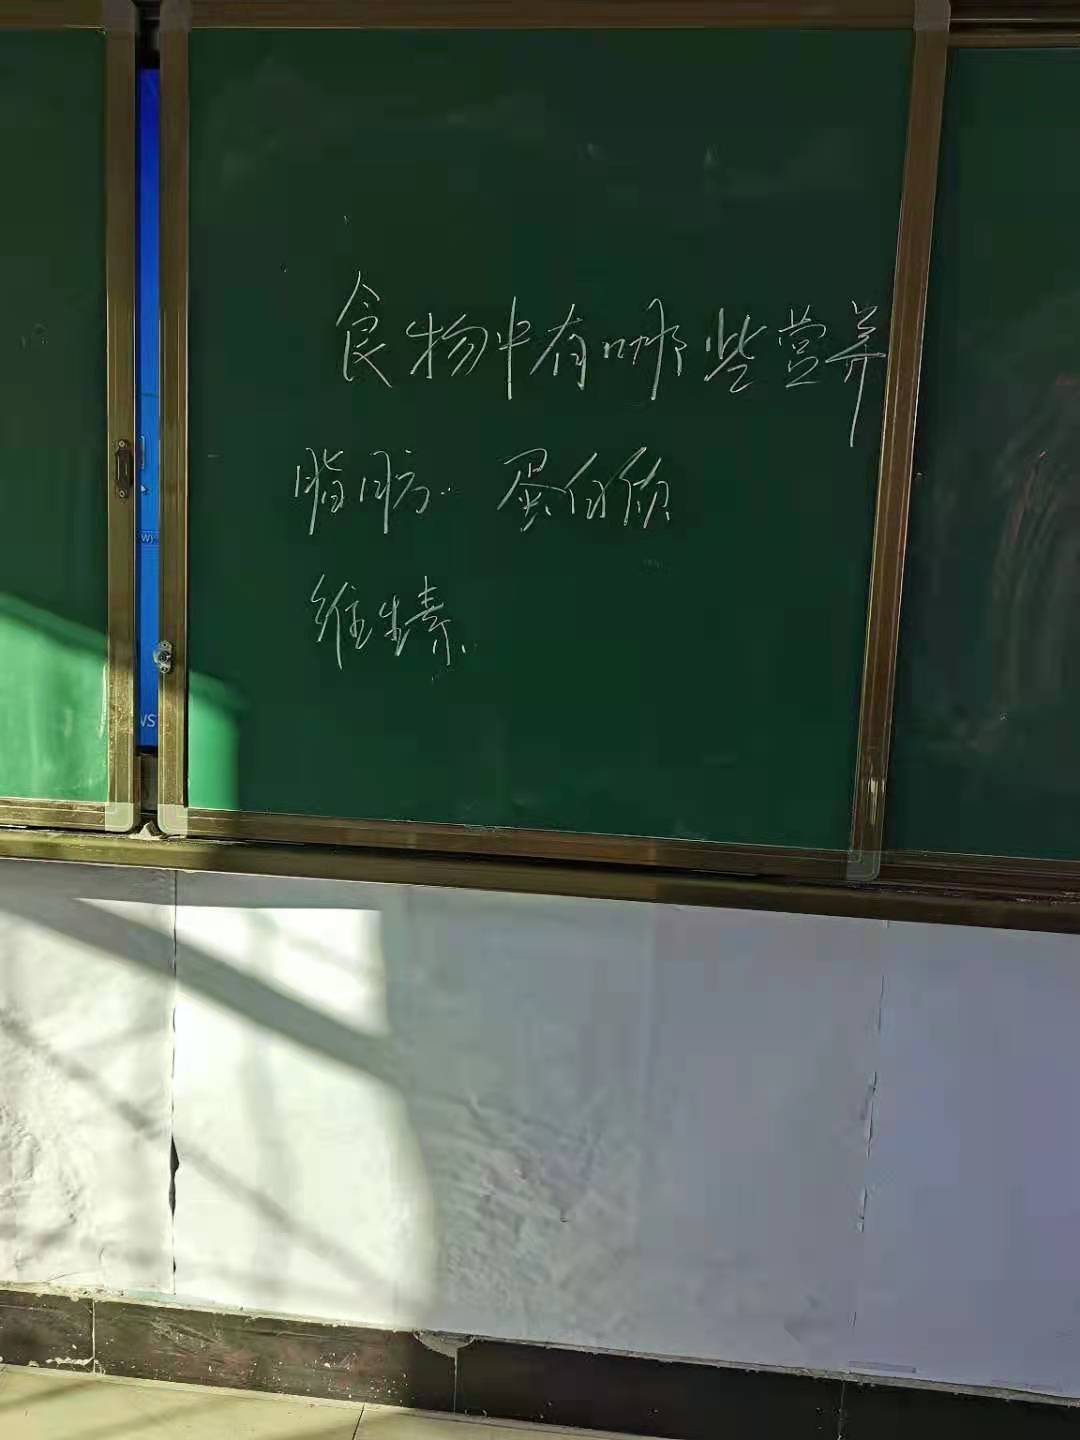 食物中有哪些营养
脂肪.. 蛋白质
维生素.